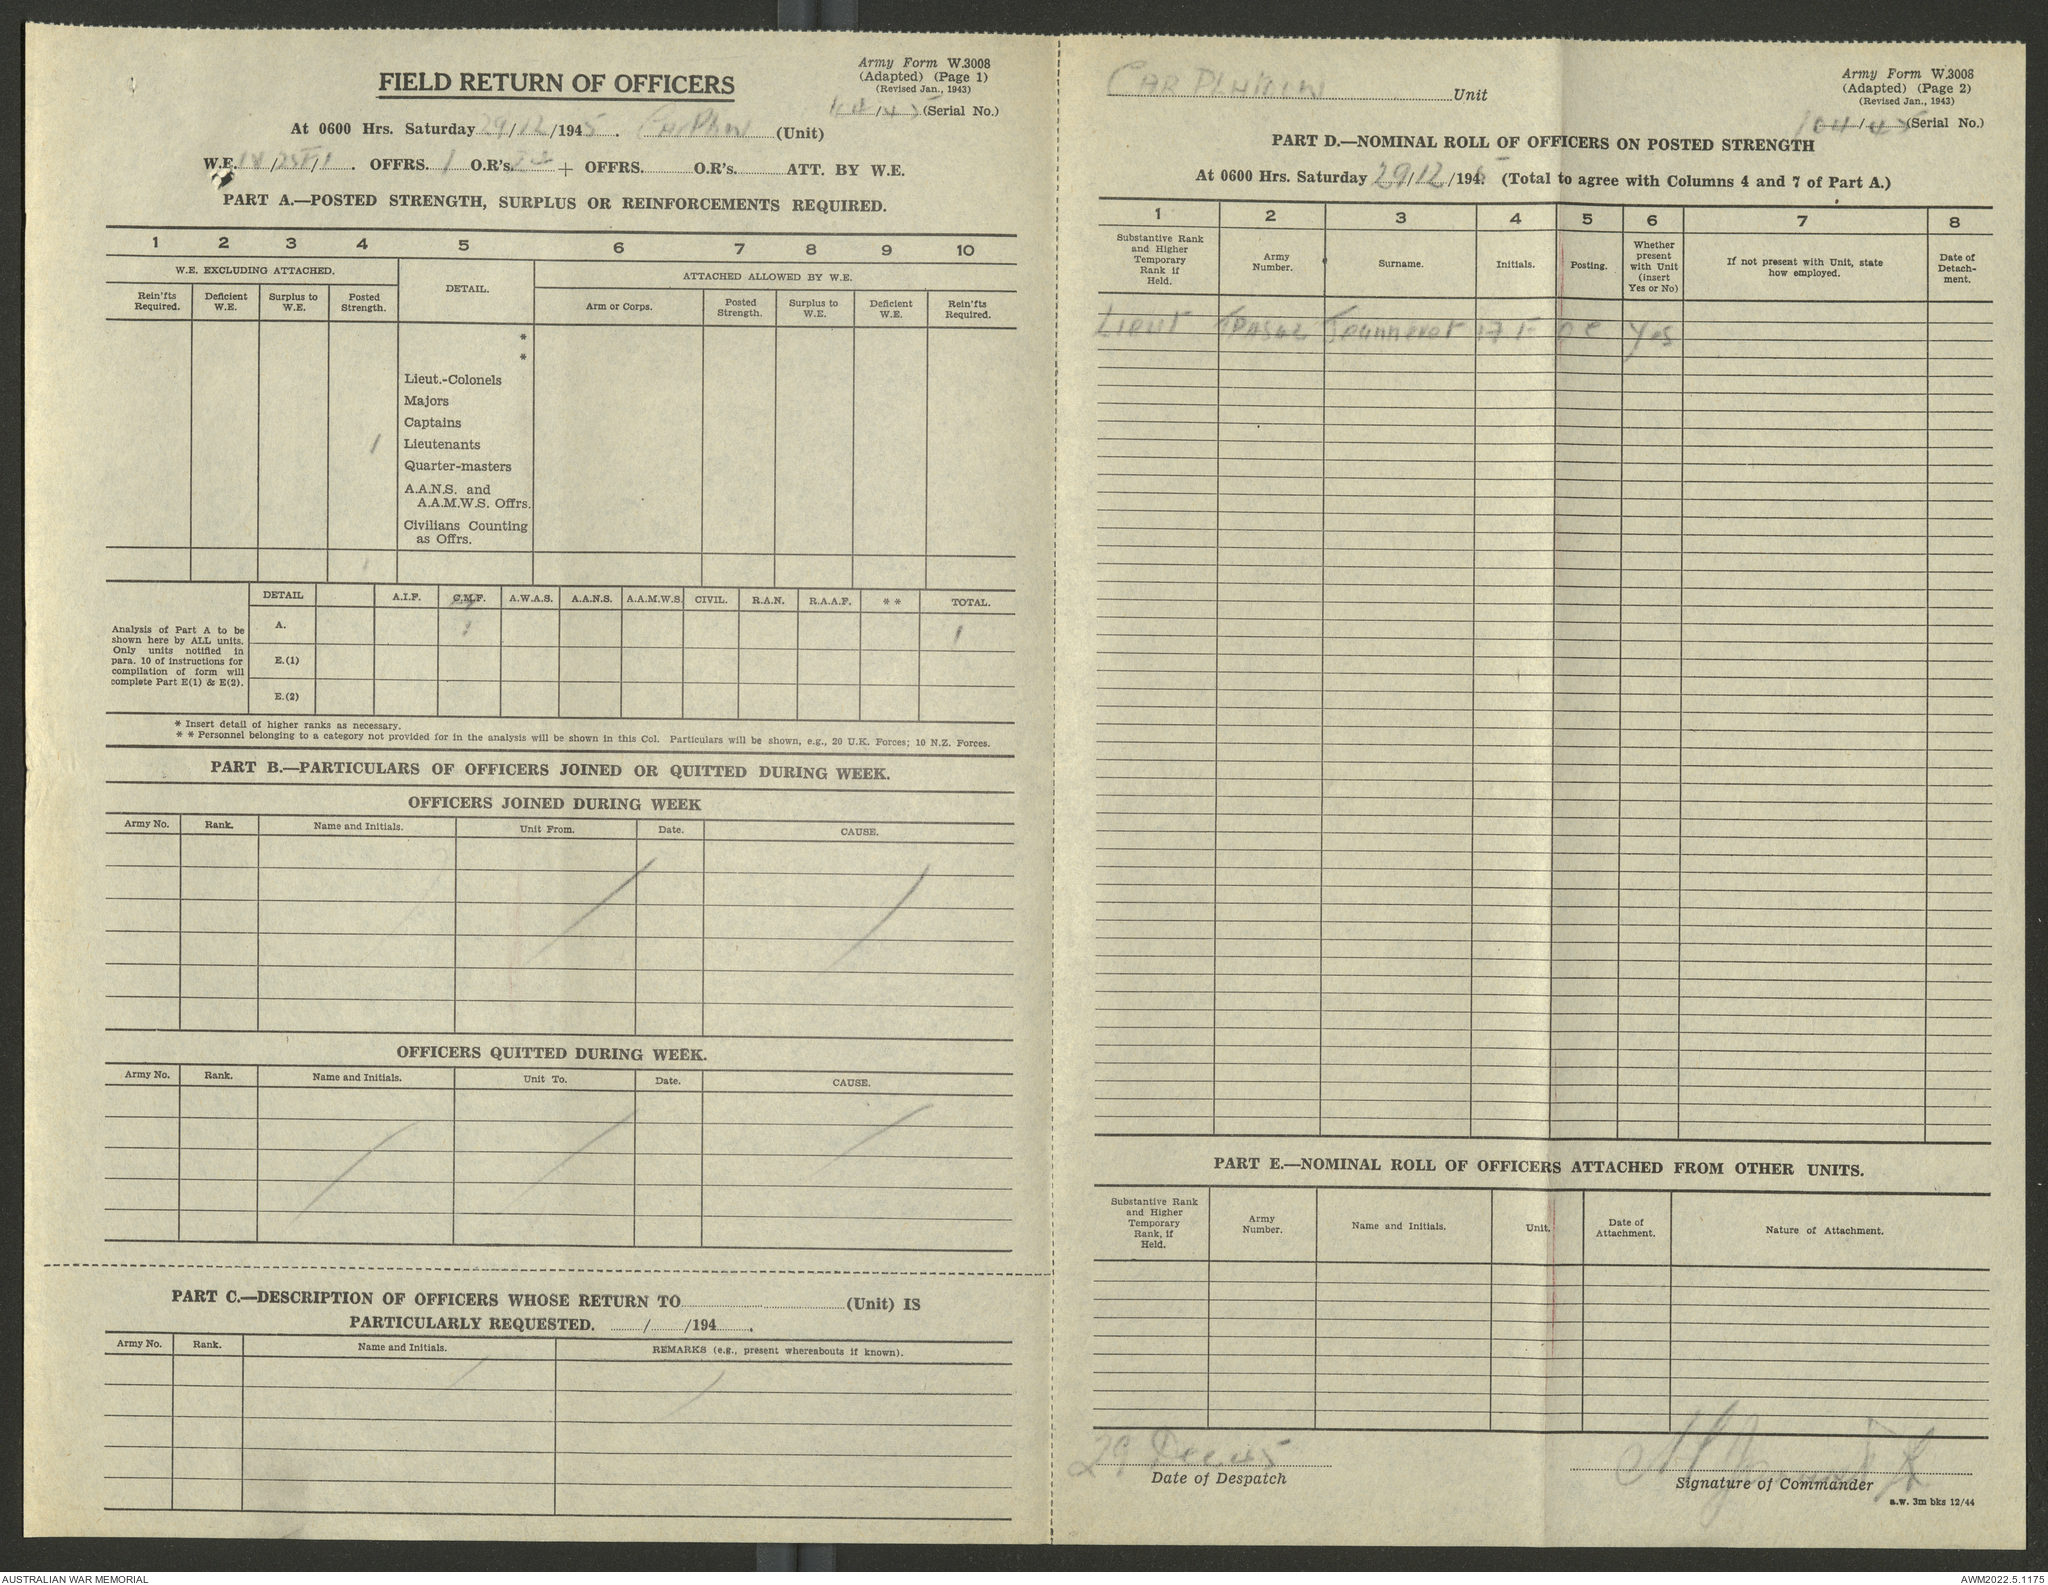 FIELD RETURN OF OFFICERS
Army Form W.3008
(Adapted) (Page 1)
(Revised Jan., 1943)
104/45 (Serial No.)
At 0600 Hrs. Saturday 29/12/1945. Car Pltn (Unit)
W.E. / / . OFFRS. 1 O.R's. + OFFRS. O.R's. ATT. BY W.E.
PART A.—POSTED STRENGTH, SURPLUS OR REINFORCEMENTS REQUIRED.
1 2 3 4 5 6 7 8 9 10
W.E. EXCLUDING ATTACHED.
DETAIL.
ATTACHED ALLOWED BY W.E.
Rein'fts Required.
Deficient W.E.
Surplus to W.E.
Posted Strength.
Arm or Corps.
Posted Strength.
Surplus to W.E.
Deficient W.E.
Rein'fts Required.
*
*
Lieut.-Colonels
Majors
Captains
1 Lieutenants
Quarter-masters
A.A.N.S. and
A.A.M.W.S. Offrs.
Civilians Counting
as Offrs.
1
DETAIL A.I.F. C.M.F. A.W.A.S. A.A.N.S. A.A.M.W.S. CIVIL. R.A.N. R.A.A.F. * * TOTAL.
Analysis of Part A to be
shown here by ALL units.
Only units notified in
para. 10 of instructions for
compilation of form will
complete Part E(1) & E(2).
A. 1 1
E.(1)
E.(2)
* Insert detail of higher ranks as necessary.
* * Personnel belonging to a category not provided for in the analysis will be shown in this Col. Particulars will be shown, e.g., 20 U.K. Forces; 10 N.Z. Forces.
PART B.—PARTICULARS OF OFFICERS JOINED OR QUITTED DURING WEEK.
OFFICERS JOINED DURING WEEK
Army No. Rank. Name and Initials. Unit From. Date. CAUSE.
OFFICERS QUITTED DURING WEEK.
Army No. Rank. Name and Initials. Unit To. Date. CAUSE.
PART C.—DESCRIPTION OF OFFICERS WHOSE RETURN TO (Unit) IS
PARTICULARLY REQUESTED. / /194 .
Army No. Rank. Name and Initials. REMARKS (e.g., present whereabouts if known).
CAR PLATOON Unit
Army Form W.3008
(Adapted) (Page 2)
(Revised Jan., 1943)
104/45 (Serial No.)
PART D.—NOMINAL ROLL OF OFFICERS ON POSTED STRENGTH
At 0600 Hrs. Saturday 29/12/1945 (Total to agree with Columns 4 and 7 of Part A.)
1 2 3 4 5 6 7 8
Substantive Rank and Higher Temporary Rank if Held.
Army Number.
Surname.
Initials.
Posting.
Whether present with Unit (insert Yes or No)
If not present with Unit, state how employed.
Date of Detach-ment.
Lieut Jeanneret OC Yes
PART E.—NOMINAL ROLL OF OFFICERS ATTACHED FROM OTHER UNITS.
Substantive Rank and Higher Temporary Rank, if Held.
Army Number.
Name and Initials.
Unit.
Date of Attachment.
Nature of Attachment.
29 Dec 45
Date of Despatch
Signature of Commander
a.w. 3m bks 12/44
AUSTRALIAN WAR MEMORIAL
AWM2022.5.1175